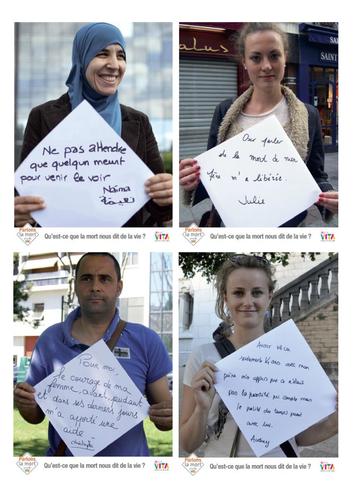 Ne pas attendre
que quelqu'un meurt
pour venir le voir
Naïma
نعيمة
Parlons
la mort
Qu'est-ce que la mort nous dit de la vie ?
VITA
alus
SAINT
Oser parler
de la mort à mon
père m'a libérée.
Julie
Parlons
la mort
Qu'est-ce que la mort nous dit de la vie ?
VITA
Pour moi,
le courage de ma
femme avant, pendant
et dans ses derniers jours
m'a apporté une
aide
Christophe
Parlons
la mort
Qu'est-ce que la mort nous dit de la vie ?
VITA
Avoir vécu
seulement 16 ans avec mon
père m'a appris que ce n'était
pas la quantité qui compte mais
la qualité du temps passé
avec lui.
Audrey
Parlons
la mort
Qu'est-ce que la mort nous dit de la vie ?
VITA